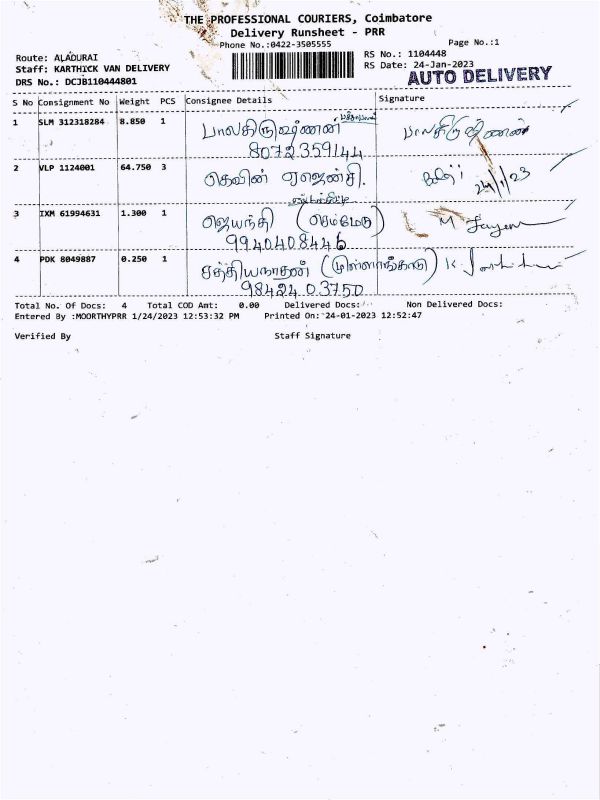 THE PROFESSIONAL COURIERS, Coimbatore
Delivery Runsheet - PRR
Phone No.:0422-3505555
Page No.:1
Route: ALADURAI
RS No.: 1104448
Staff: KARTHICK VAN DELIVERY
RS Date: 24-Jan-2023
DRS No.: DCJB110444801
AUTO DELIVERY
S No Consignment No Weight PCS Consignee Details Signature
1 SLM 312318284 8.850 1 பாலகிருஷ்ணன் பாலகிருஷ்ணன்
8072359144
2 VLP 1124001 64.750 3 கெவின் ஏஜென்சி. 24/1/23
3 IXM 61994631 1.300 1 ஜெயந்தி (செம்மேடு) M
9940408446
4 PDK 8049887 0.250 1 சத்தியநாதன் (முள்ளாங்காடு) K.
9842403750
Total No. Of Docs: 4 Total COD Amt: 0.00 Delivered Docs: Non Delivered Docs:
Entered By :MOORTHYPRR 1/24/2023 12:53:32 PM Printed On: 24-01-2023 12:52:47
Verified By Staff Signature